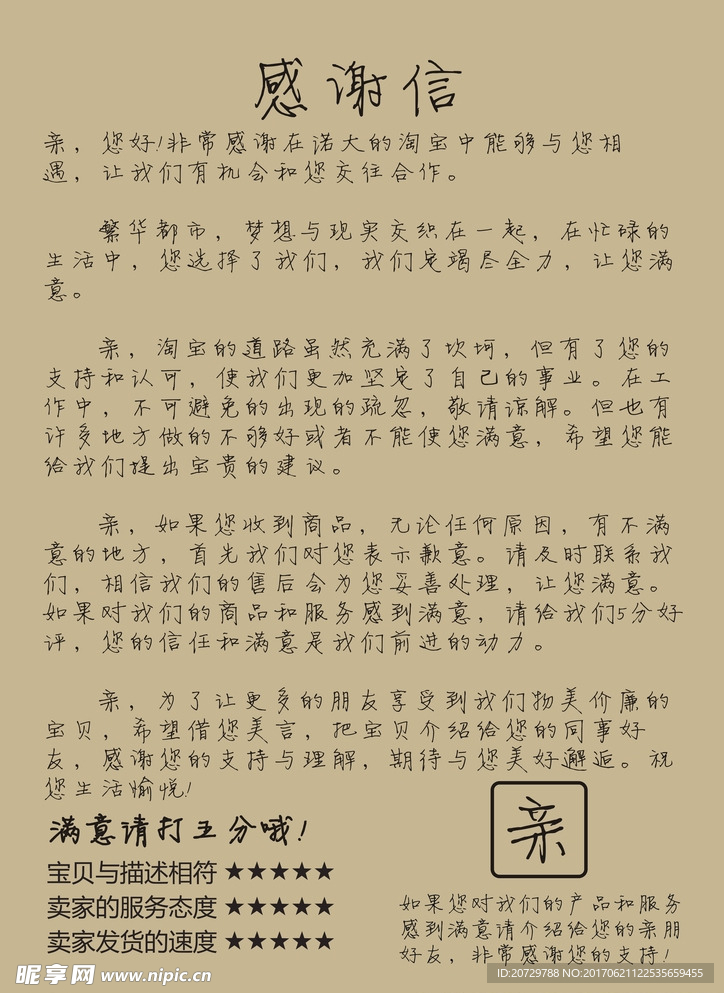 感谢信
亲，您好!非常感谢在诺大的淘宝中能够与您相
遇，让我们有机会和您交往合作。
繁华都市，梦想与现实交织在一起，在忙碌的
生活中，您选择了我们，我们定竭尽全力，让您满
意。
亲，淘宝的道路虽然充满了坎坷，但有了您的
支持和认可，使我们更加坚定了自己的事业。在工
作中，不可避免的出现的疏忽，敬请谅解。但也有
许多地方做的不够好或者不能使您满意，希望您能
给我们提出宝贵的建议。
亲，如果您收到商品，无论任何原因，有不满
意的地方，首先我们对您表示歉意。请及时联系我
们，相信我们的售后会为您妥善处理，让您满意。
如果对我们的商品和服务感到满意，请给我们5分好
评，您的信任和满意是我们前进的动力。
亲，为了让更多的朋友享受到我们物美价廉的
宝贝，希望借您美言，把宝贝介绍给您的同事好
友，感谢您的支持与理解，期待与您美好邂逅。祝
您生活愉悦!
满意请打五分哦!
宝贝与描述相符 ★★★★★
卖家的服务态度 ★★★★★
卖家发货的速度 ★★★★★
亲
如果您对我们的产品和服务
感到满意请介绍给您的亲朋
好友，非常感谢您的支持!
昵享网 www.nipic.cn
ID:20729788 NO:20170621122535659455